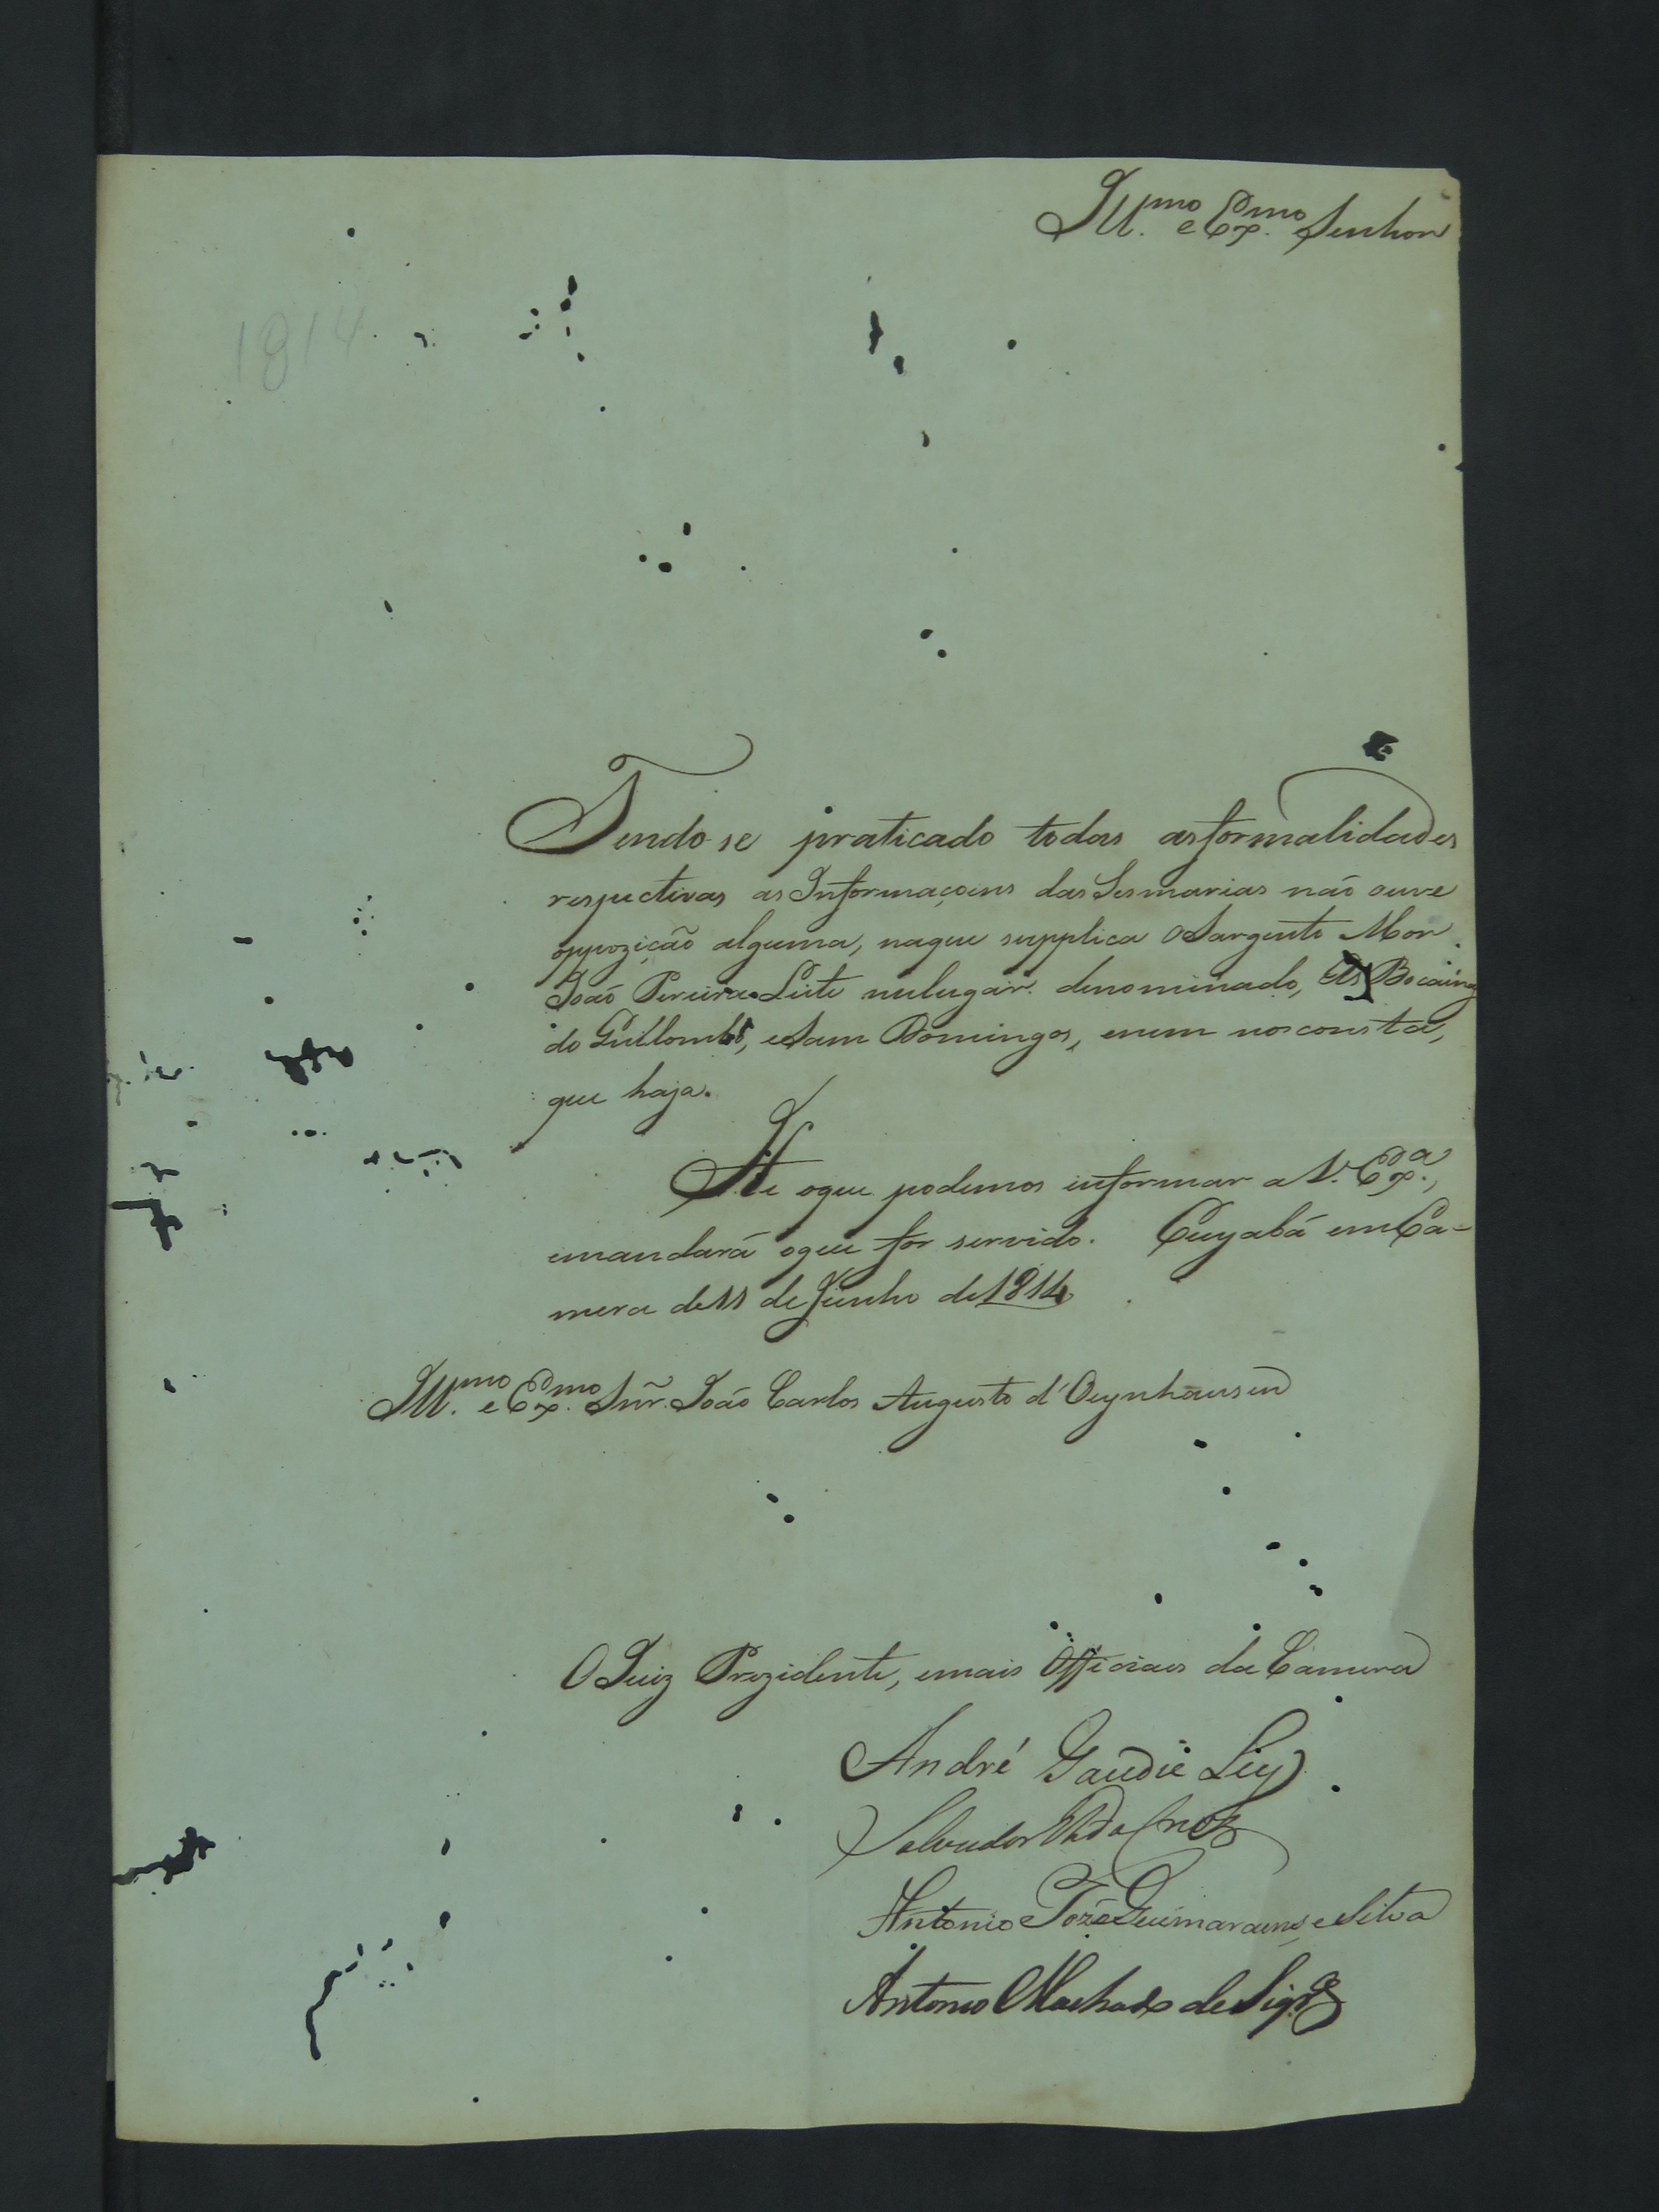 Ill.mo e Ex.mo Senhor
1814
Tendo-se praticado todas as formalidades
respectivas as Informaçoens das Sesmarias não ouve
oppozição alguma, naque supplica o Sargento Mor
João Pereira Leite nulugar denominado, As Bocainas
do Quillombo, e Sam Domingos, enem nos consta,
que haja.
He oque podemos informar a V. Ex.a,
emandará oque for servido. Cuyabá em Ca-
mera de 11 de Junho de 1814
Ill.mo e Ex.mo Snr. João Carlos Augusto d'Oeynhausen
O Juiz Prezidente, emais Officiaes da Camera
André Gaudie Ley
Salvador da Cruz
Antonio Jozé Guimaraens e Silva
Antonio Machado de